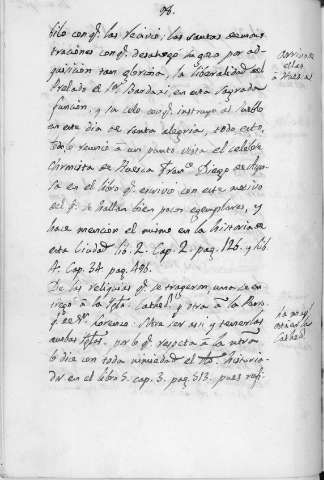 98.
bilo con q.e las recivió; las santas demos=
traciones con q.e desahogó su gozo por ad=
quisición tan gloriosa, la liberalidad del
Prelado el Sr. Bardaxi en esta sagrada
función, y su celo con q.e instruyó al Pueblo
en este dia de santa alegria, todo esto,
todo lo reunió a un punto vista el celebre
Chronista de Huesca Fran.co Diego de Ayn=
sa en el libro q.e escrivió con este motivo
del q.e se hallan bien pocos egemplares, y
hace mencion el mismo en la historia de
esta Ciudad lib. 2. Cap. 2. pag. 126. y lib.
4. Cap. 34. pag. 496.
De las reliquias q.e se trageron, una se en=
tregó à la Ygla. Cathed.l y otra à la Parro.
q.l de Sn. Lorenzo. Ser asi y tenerlas
ambas Ygla.s por lo q.e respeta à la ntra.
lo dice con toda el Historia=
dor en el libro 5. cap. 3. pag. 513. pues refi=
à
Cathed.l